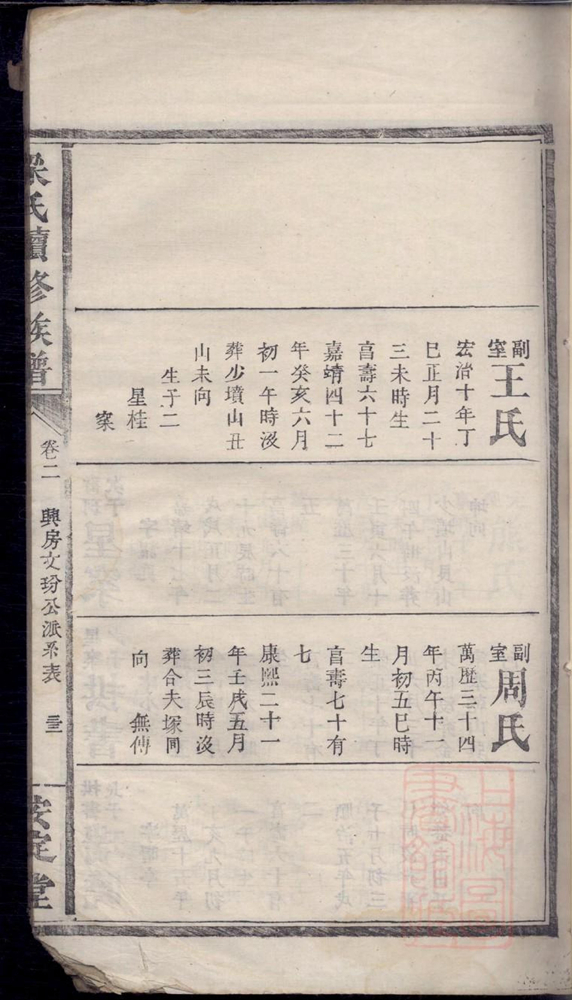 副室王氏
宏治十年丁
巳正月二十
三未時生
亯壽六十七
嘉靖四十二
年癸亥六月
初一午時沒
葬少墳山丑
山未向
生子二
星桂
寀
副室周氏
萬歷三十四
年丙午十一
月初五巳時
生
亯壽七十有
七
康熙二十一
年壬戌五月
初三辰時沒
葬合夫塚同
向 無傳
氏續修族譜
卷二
興房文玢公派系表
安定堂
上海圖書館藏